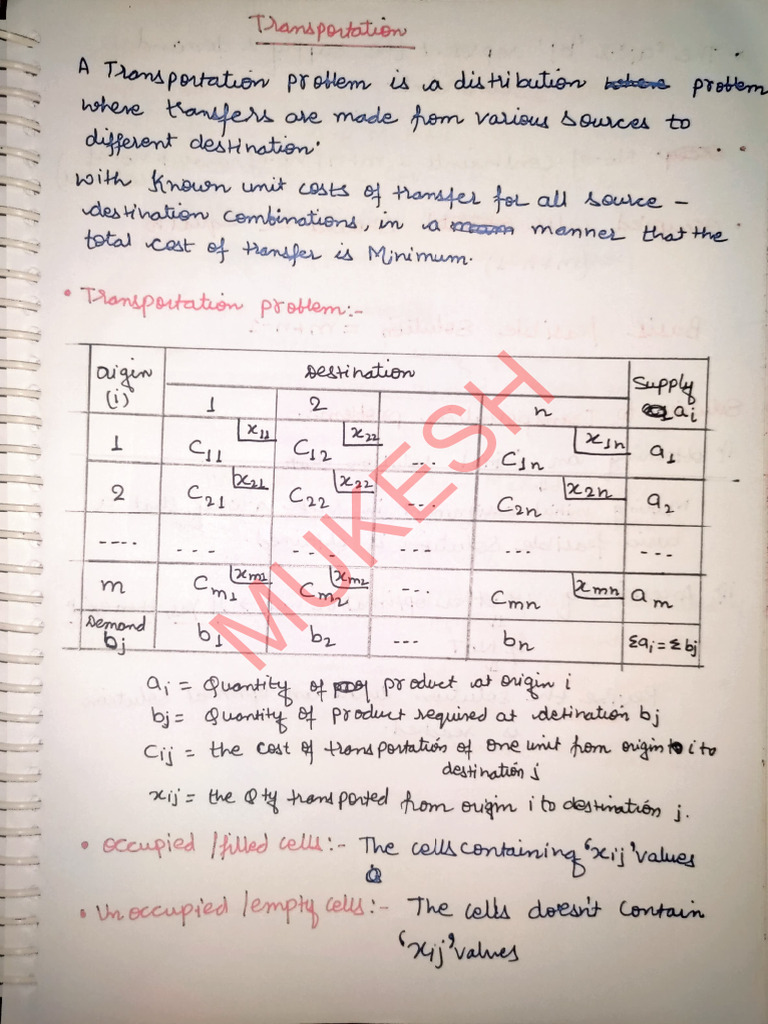 Transportation
A Transportation problem is a distribution where problem
where transfers are made from various sources to
different destination.
with Known unit costs of transfer for all source -
destination combinations, in a manner that the
total cost of transfer is Minimum.
• Transportation problem:-
Origin (i) Destination Supply ai
1 2 n
1 C11 x11 C12 x22 ... C1n x1n a1
2 C21 x21 C22 x22 ... C2n x2n a2
.... ... ... ... ... ...
m Cm1 xm1 Cm2 xm2 ... Cmn xmn am
Demand bj b1 b2 ... bn Σai = Σbj
ai = Quantity of product at origin i
bj = Quantity of product required at detination bj
Cij = the cost of transportation of one unit from origin i to
destination j
xij = the Qty transported from origin i to destination j.
• Occupied / filled cells:- The cells containing 'xij' values
• Unoccupied / empty cells:- The cells doesn't contain
'xij' values
MUKESH